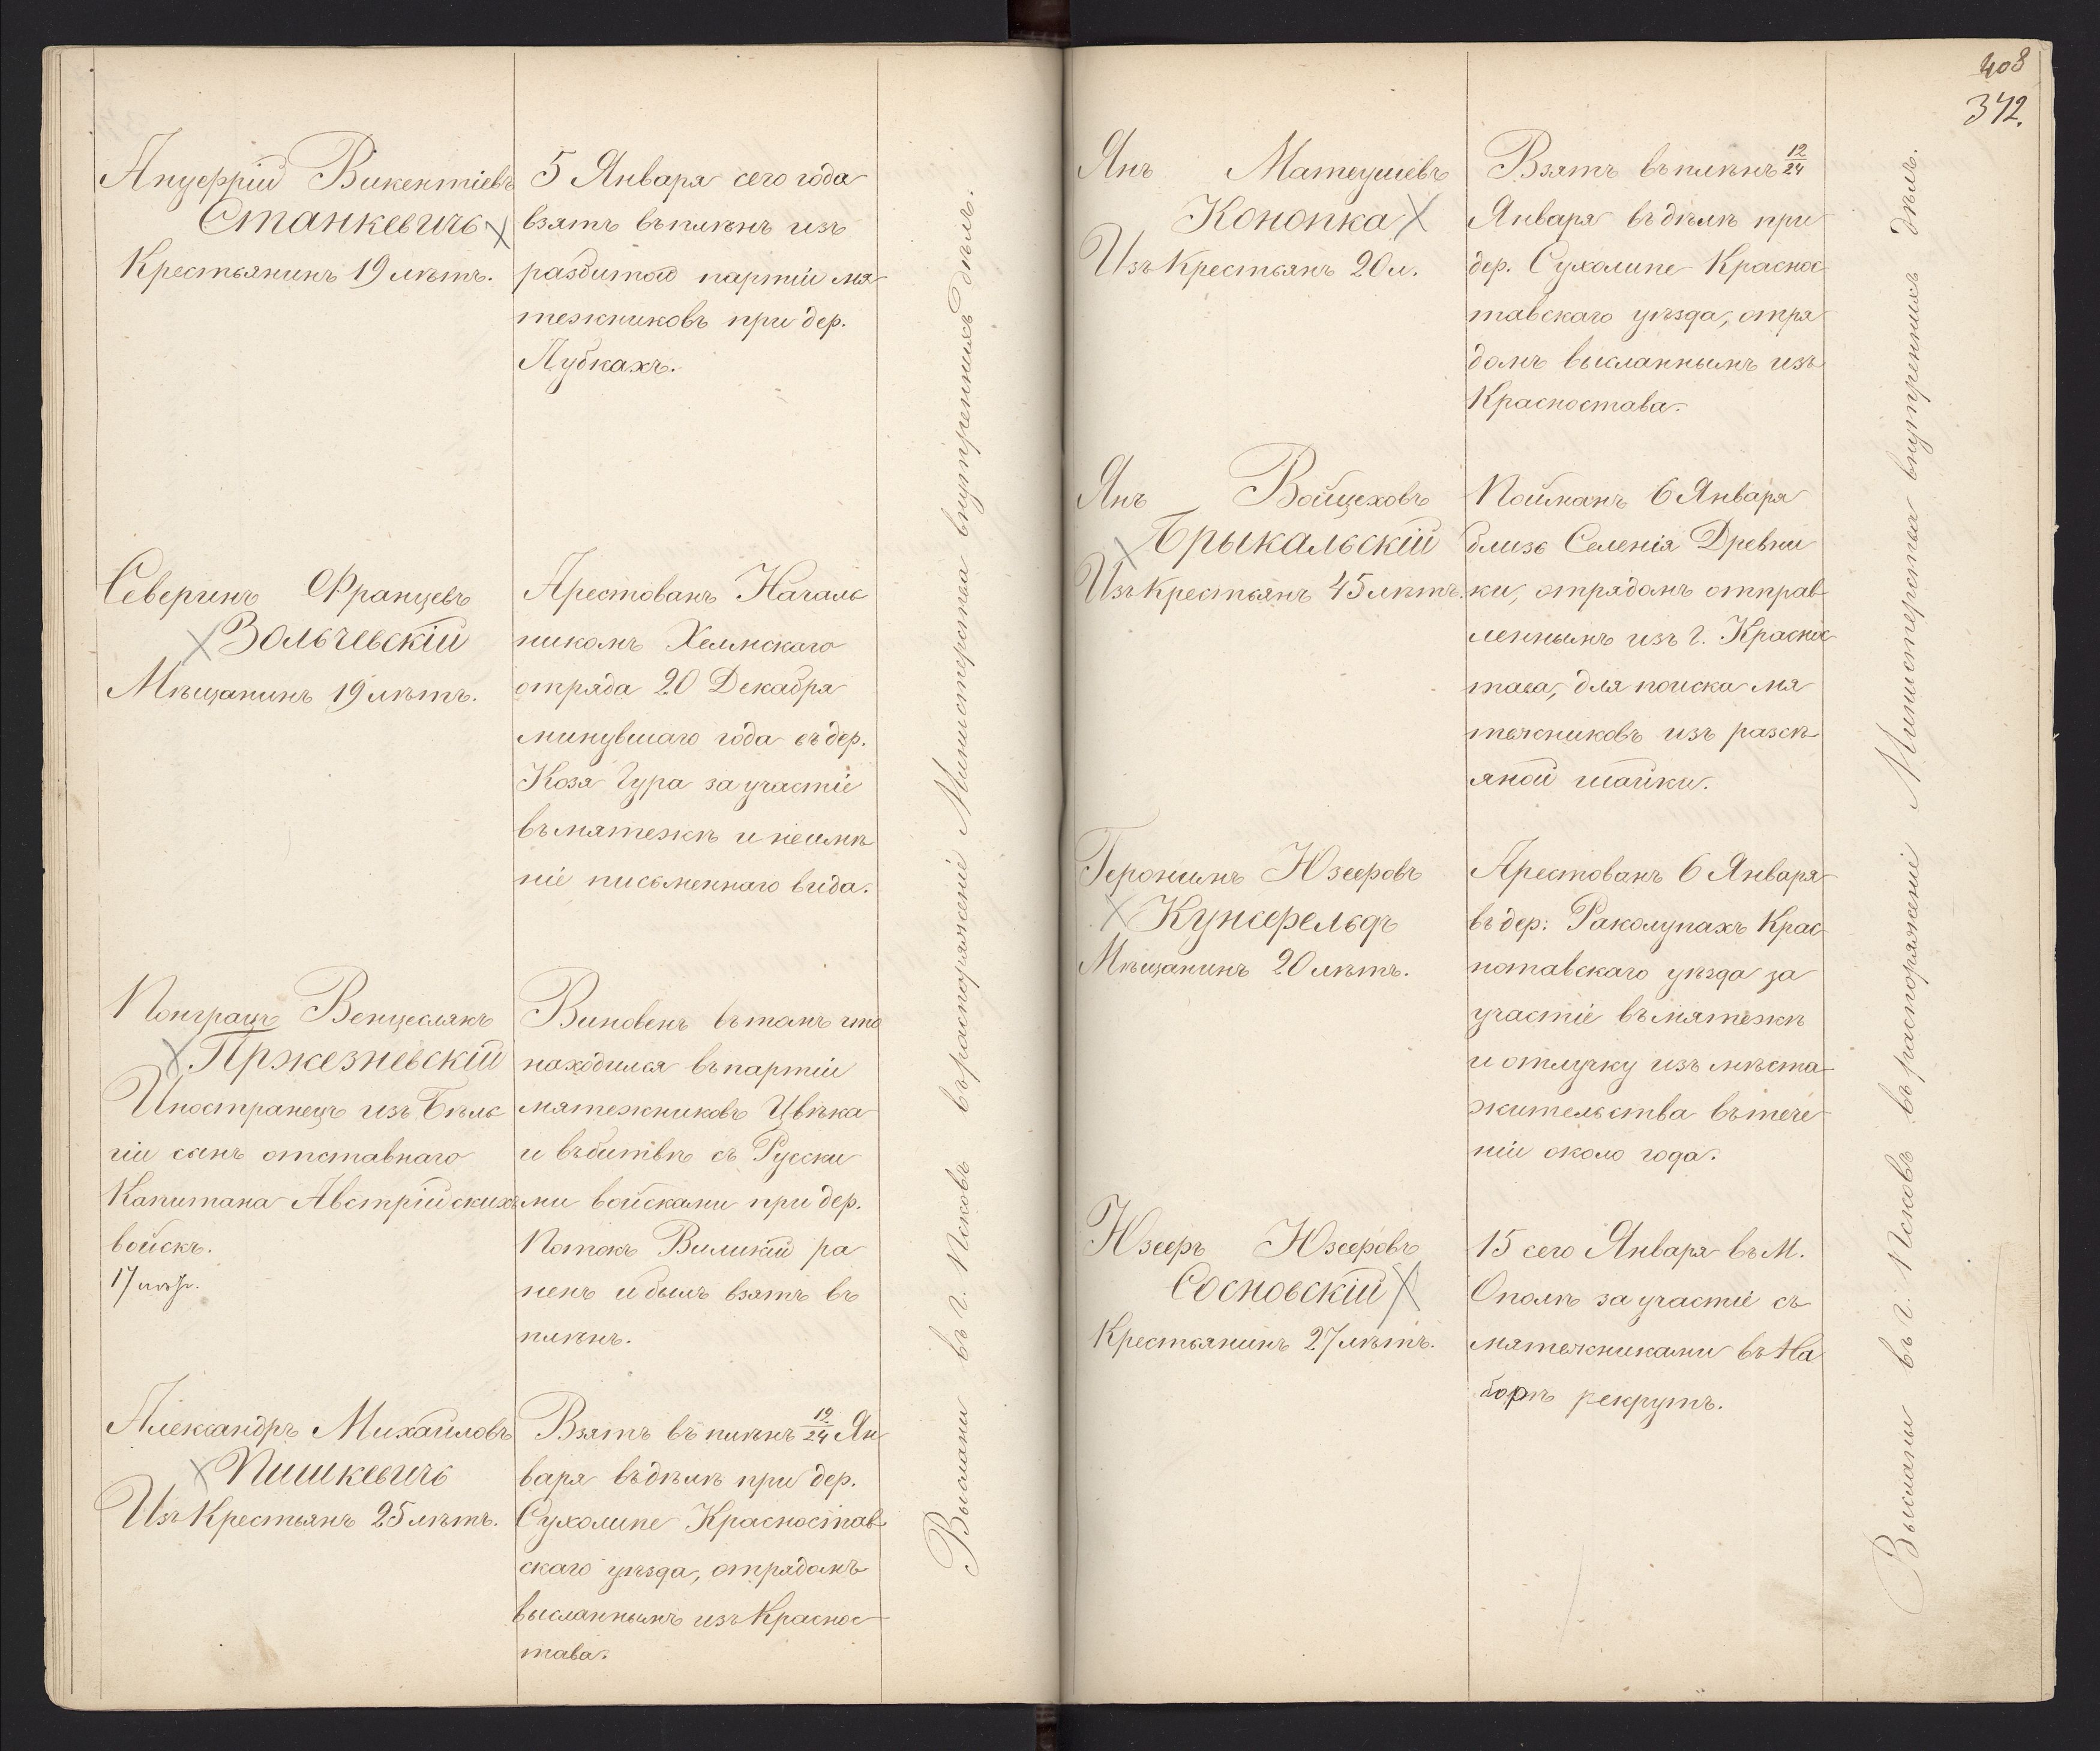 Ануфрій Викентіевъ
Станкевичъ
Крестьянинъ 19 лѣтъ.
5 Января сего года
взятъ въ плѣнъ изъ
разбитой партіи мя
тежниковъ при дер.
Лубкахъ.
Северинъ Францевъ
Зольчевскій
Мѣщанинъ 19 лѣтъ.
Арестованъ Началь
никомъ Хелмскаго
отряда 20 Декабря
минувшаго года въ дер.
Козя Гура за участіе
въ мятежѣ и неимѣ
ніе письменнаго вида.
Понграцъ Венцеслякъ
Пржезневскій
Иностранецъ изъ Бѣль
гіи сынъ отставнаго
Капитана Австрійскихъ
войскъ.
17 лѣтъ.
Виновенъ въ томъ что
находился въ партіи
мятежниковъ Цвѣка
и въ битвѣ съ Русски
ми войсками при дер.
Потокъ Виликій ра
ненъ и былъ взятъ въ
плѣнъ.
Александръ Михайловъ
Пишкевичъ
Изъ Крестьянъ 25 лѣтъ.
Взятъ въ плѣнъ 12/24 Ян
варя въ дѣлѣ при дер.
Сухолипе Красностав
скаго уѣзда, отрядомъ
высланнымъ изъ Краснос
тава.
Высланы въ г. Псковъ въ распоряженіе Министерства внутреннихъ дѣлъ.
408
372.
Янъ Матеушевъ
Конопка
Изъ Крестьянъ 20 л.
Взятъ въ плѣнъ 12/24
Января въ дѣлѣ при
дер. Сухолипе Краснос
тавскаго уѣзда, отря
домъ высланнымъ изъ
Красностава.
Янъ Войцеховъ
Брыкальскій
Изъ Крестьянъ 45 лѣтъ.
Пойманъ 6 Января
близь Селенія Древни
ки, отрядомъ отправ
леннымъ изъ г. Краснос
тава, для поиска мя
тежниковъ изъ разсѣ
яной шайки.
Геронимъ Юзефовъ
Кунсфельдъ
Мѣщанинъ 20 лѣтъ.
Арестованъ 6 Января
въ дер: Раколупахъ Крас
нотавскаго уѣзда за
участіе въ мятежѣ
и отлучку изъ мѣста
жительства въ тече
ніи около года.
Юзефъ Юзефовъ
Сосновскій
Крестьянинъ 27 лѣтъ.
15 сего Января въ М.
Ополѣ за участіе съ
мятежниками въ На
борѣ рекрутъ.
Высланы въ г. Псковъ въ распоряженіе Министерства внутреннихъ дѣлъ.